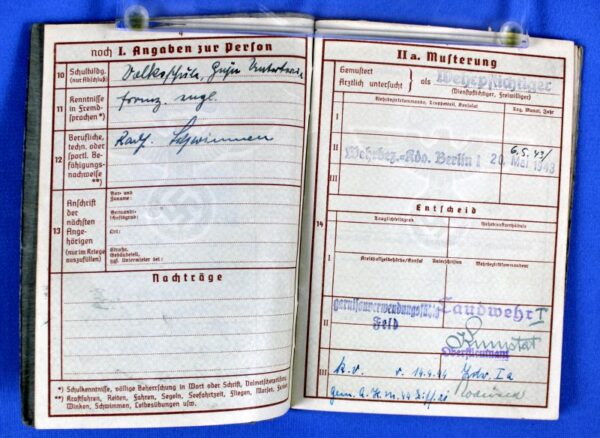 noch I. Angaben zur Person
10 Schulbildg. (nur Abschluß)
Volksschule,
11 Kenntnisse in Fremdsprachen *)
franz. engl.
12 Berufliche, techn. oder sportl. Befähigungsnachweise **)
Radf. Schwimmen
13 Anschrift der nächsten Angehörigen (nur im Kriege auszufüllen)
Vor- und Zuname:
Ort:
Straße, Gebäudeteil, bzw. Untermieter bei:
Nachträge
*) Schulkenntnisse, völlige Beherrschung in Wort oder Schrift,
**) Kraftfahren, Reiten, Fahren, Segeln, Seefahrtzeit, Fliegen,
Winken, Schwimmen, Leibesübungen usw.
II a. Musterung
Gemustert
Ärztlich untersucht
als Wehrpflichtiger
(Dienstpflichtiger, Freiwilliger)
Tag, Monat, Jahr
I
II
III
6.5.43/
Wehrbez.-Kdo. Berlin I 20. Mai 1943
14
Entscheid
Tauglichkeitsgrad
Wehrdienstverhältnis
Unterschriften
I
II
garnisonverwendungsfähig Feld
Landwehr I
Oberstleutnant
III
k.v. v. 14.4.44